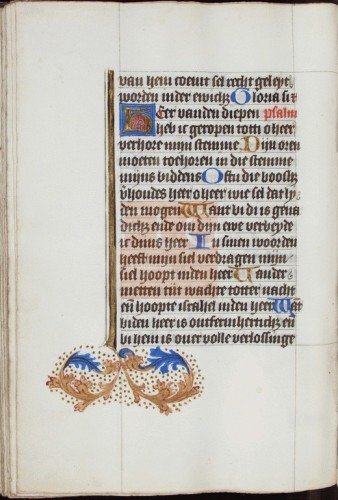 van hem coemt sel recht geleyt
worden inder ewich; Gloria sit
Eer vanden diepen psalm
heb ic geropen tot di o heer
verhore mijn stemme Dijn oren
moeten tohoren in die stemme
mijns biddens Oftu die boosh;
yhoudes heer o heer wie sel dat ly
den mogen Want bi di is gena
dich; ende om dijn ewe verbeyde
ic dijns heer In sinen woorden
heeft mijn siel verdragen mijn
siel hoopt inden heer Vander
metten tiit wachte toter nacht
en̄ hoopte israhel inden heer Wāt
biden heer is ontfermhertich; en̄
bi hem is over volle verlossinge